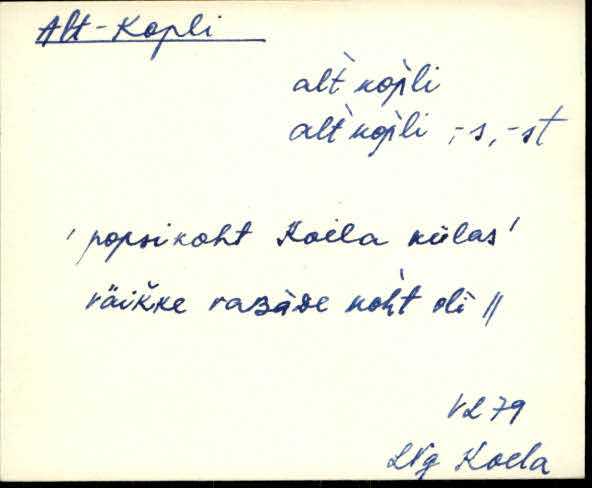 Alt-Kopli
alt̀ kop̀li
alt̀ kop̀li, -s, -st
'popsikoht Koila külas'
väikke vabade koh̀t oli ||
VL 79
LNg Koela